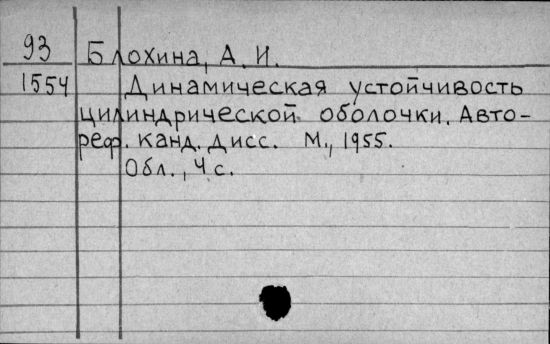 93 Блохина, А. И.
1554 Динамическая устойчивость
цилиндрической оболочки. Авто-
реф. канд. дисс. М., 1955.
Обл., 4 с.